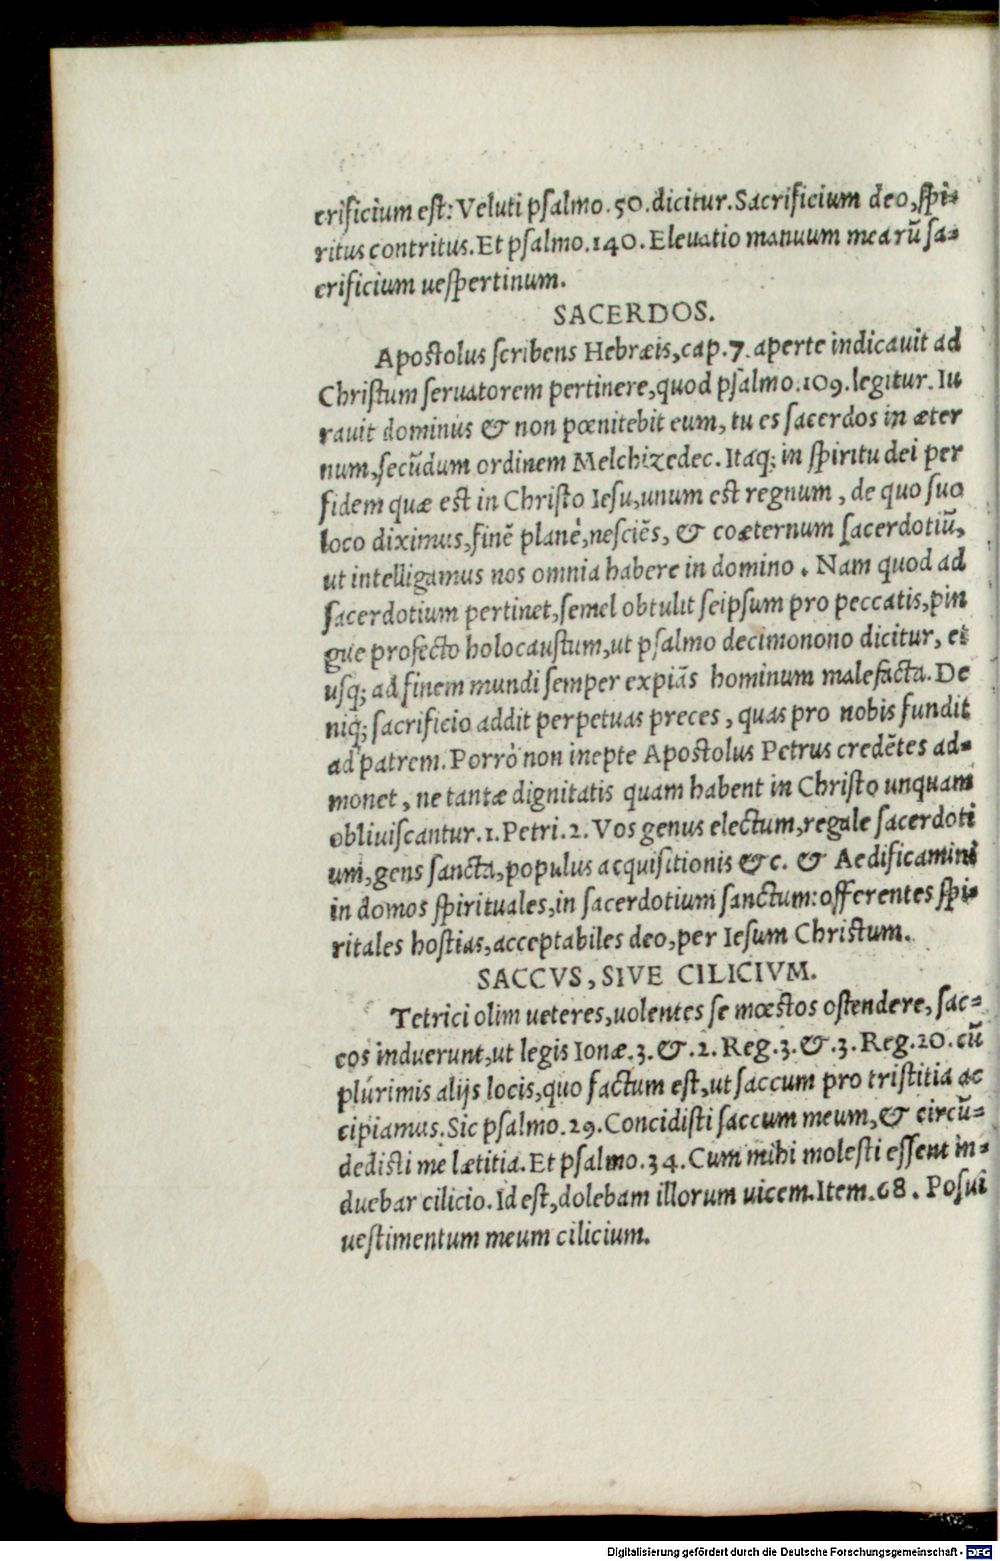 crificium est: Veluti psalmo. 50. dicitur. Sacrificium deo, spi-
ritus contritus. Et psalmo. 140. Eleuatio manuum mearū sa-
crificium uespertinum.
SACERDOS.
Apostolus scribens Hebræis, cap. 7. aperte indicauit ad
Christum seruatorem pertinere, quod psalmo. 109. legitur. Iu
rauit dominus & non pœnitebit eum, tu es sacerdos in æter
num, secūdum ordinem Melchizedec. Itaq; in spiritu dei per
fidem quæ est in Christo Iesu, unum est regnum, de quo suo
loco diximus, finē planè, nesciēs, & coæternum sacerdotiū,
ut intelligamus nos omnia habere in domino. Nam quod ad
sacerdotium pertinet, semel obtulit seipsum pro peccatis, pin
gue profecto holocaustum, ut psalmo decimonono dicitur, et
usq; ad finem mundi semper expiās hominum malefacta. De
niq; sacrificio addit perpetuas preces, quas pro nobis fundit
ad patrem. Porrò non inepte Apostolus Petrus credētes ad-
monet, ne tantæ dignitatis quam habent in Christo unquam
obliuiscantur. 1. Petri. 2. Vos genus electum, regale sacerdoti
um, gens sancta, populus acquisitionis &c. & Aedificamini
in domos spirituales, in sacerdotium sanctum: offerentes spi-
ritales hostias, acceptabiles deo, per Iesum Christum.
SACCVS, SIVE CILICIVM.
Tetrici olim ueteres, uolentes se mœstos ostendere, sac-
cos induerunt, ut legis Ionæ. 3. &. 2. Reg. 3. &. 3. Reg. 20. cū
plurimis alijs locis, quo factum est, ut saccum pro tristitia ac
cipiamus. Sic psalmo. 29. Concidisti saccum meum, & circū-
dedisti me lætitia. Et psalmo. 34. Cum mihi molesti essent in-
duebar cilicio. Id est, dolebam illorum uicem. Item. 68. Posui
uestimentum meum cilicium.
Digitalisierung gefördert durch die Deutsche Forschungsgemeinschaft - DFG